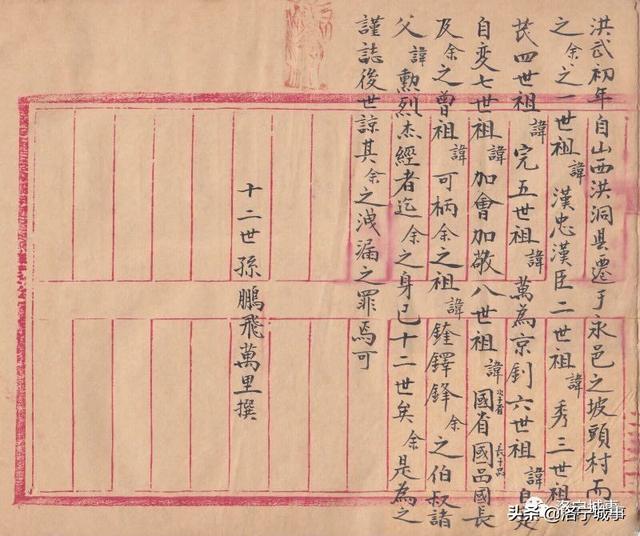 洪武初年自山西洪洞县遷于永邑之坡頭村而
之余之一世祖諱漢忠漢臣二世祖諱秀三世祖
茂四世祖諱完五世祖諱萬為京釗六世祖諱自
自变七世祖諱加會加敬八世祖諱國省國品國長
及余之曾祖諱可柄余之祖諱鍷鐸鋒余之伯叔諸
父諱勲烈杰經者迄余之身已十二世矣余是為之
謹誌後世諒其余之洩漏之罪焉可
十二世孫鵬飛萬里撰
头条 @洛宁城事
洛宁城事